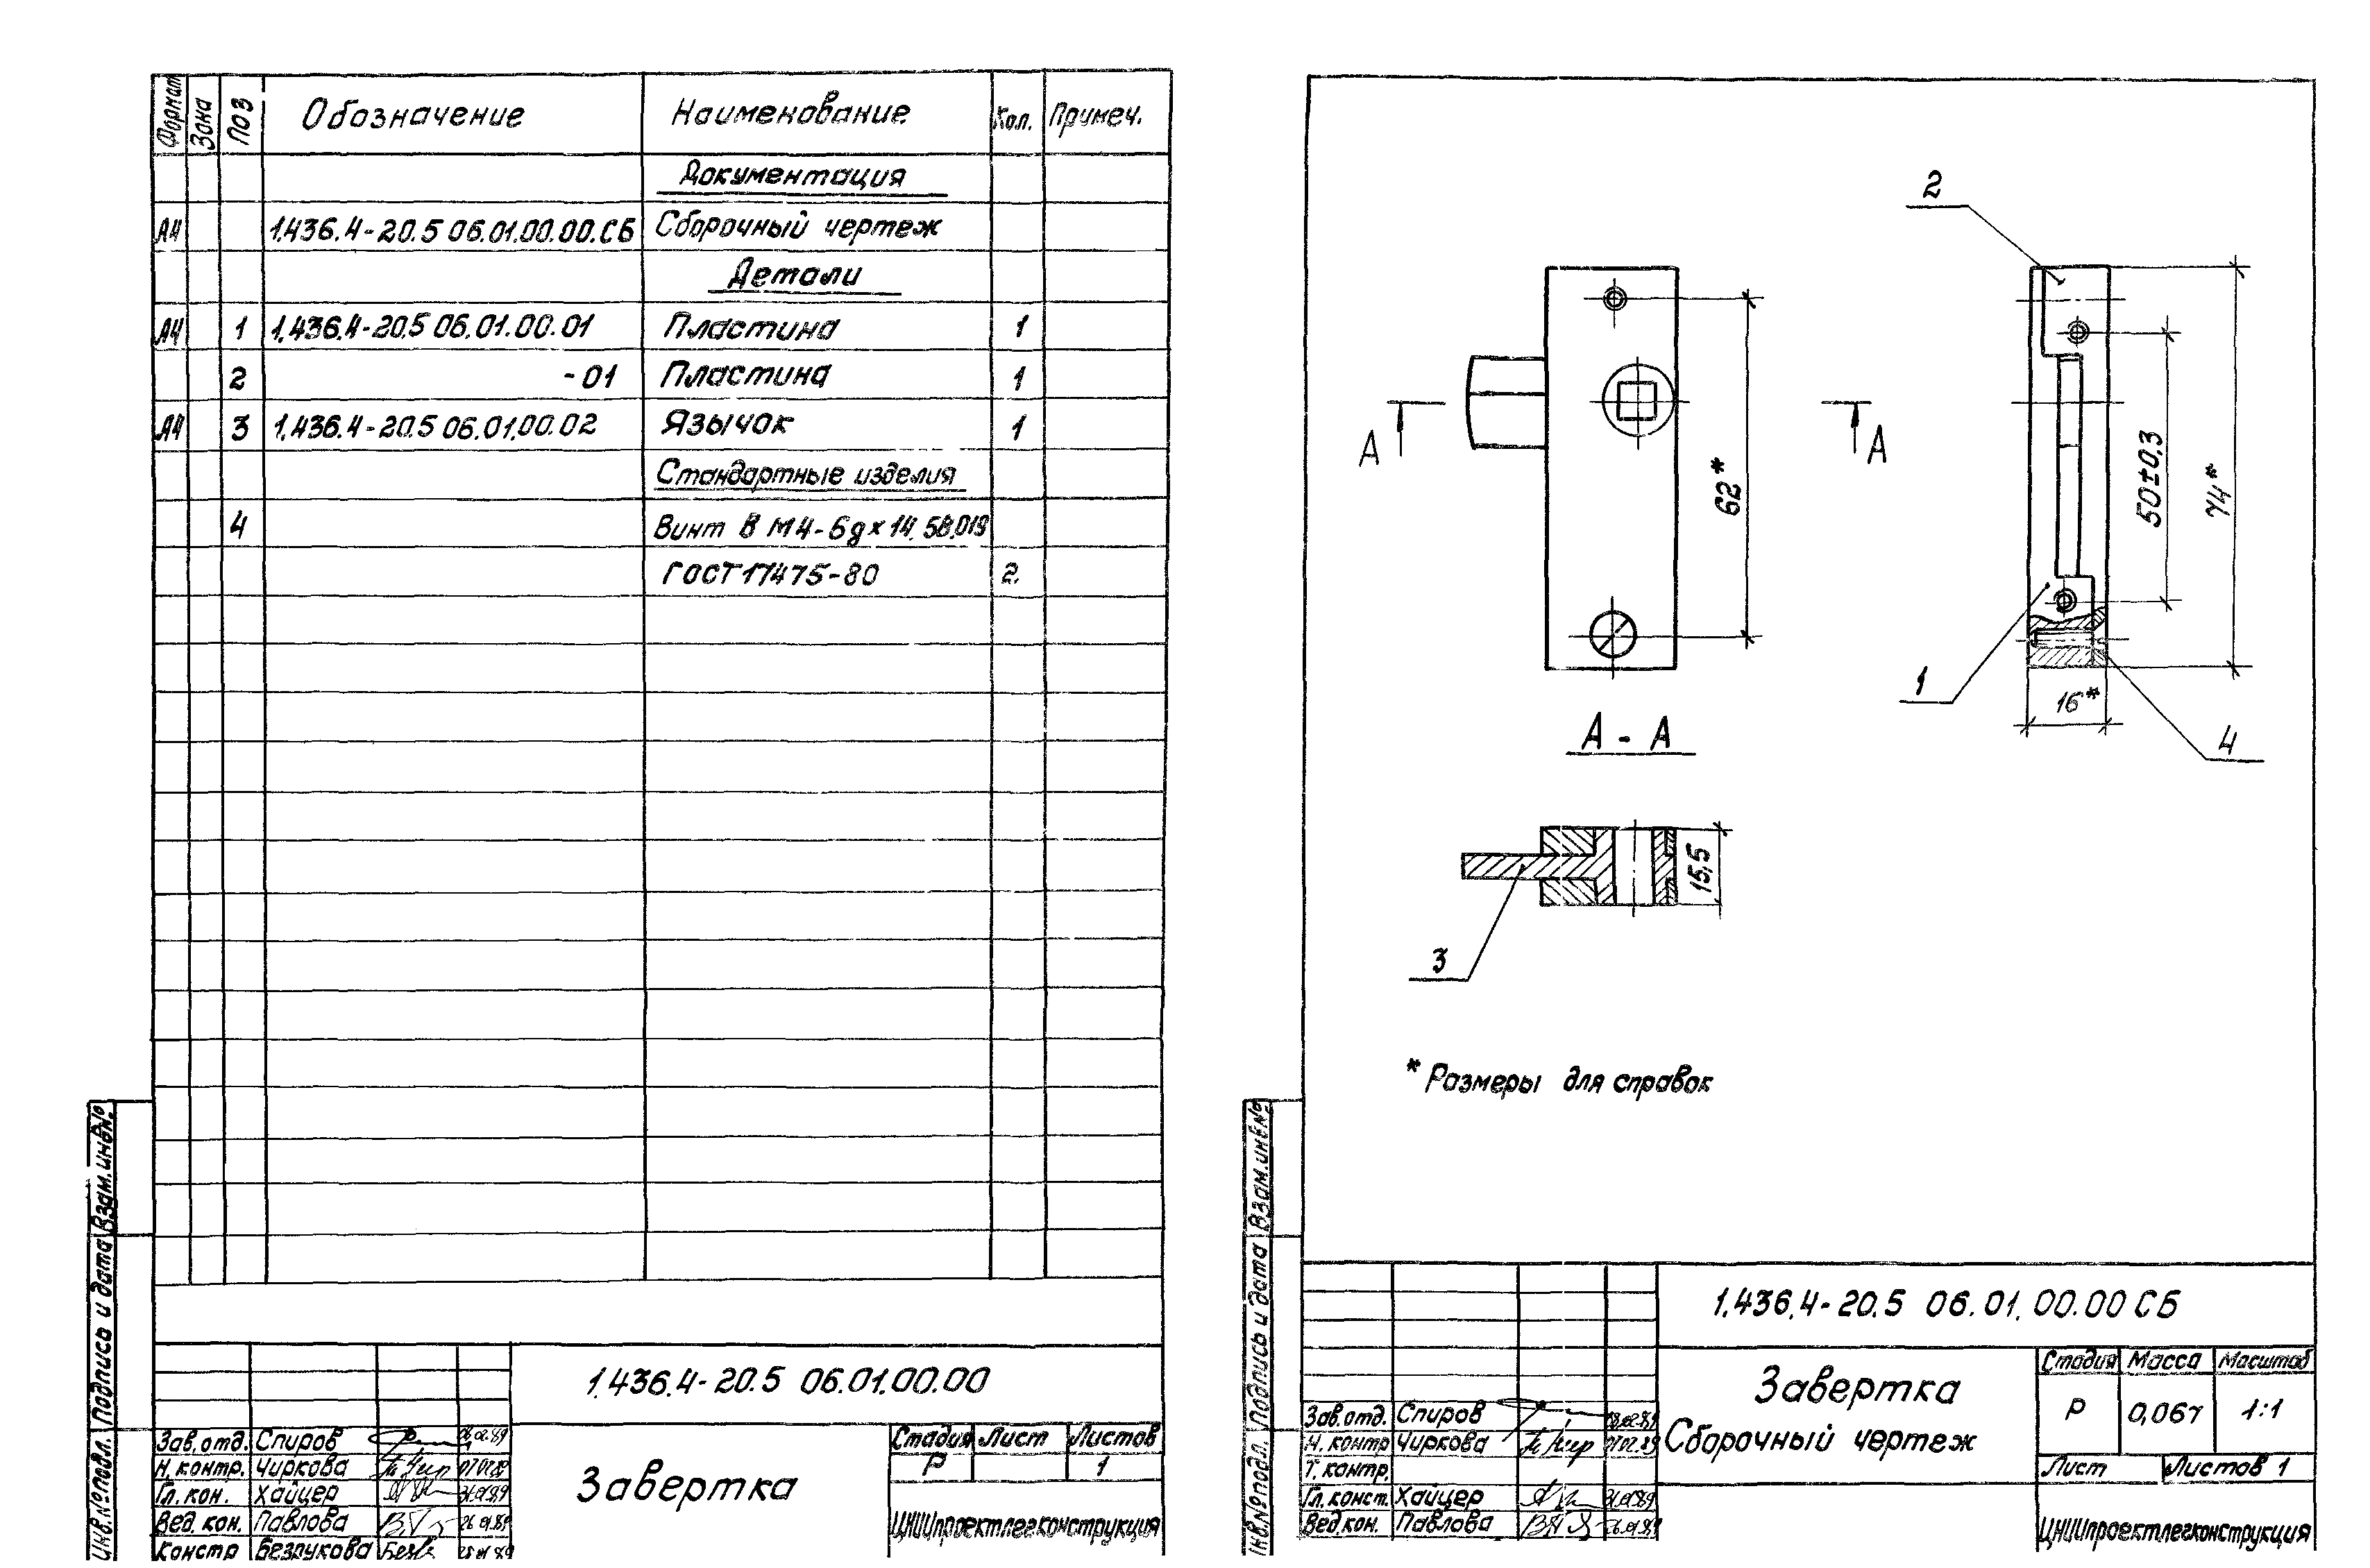 Формат Зона Поз Обозначение Наименование Кол. Примеч.
Документация
А4 1.436.4-20.5 06.01.00.00.СБ Сборочный чертеж
Детали
А4 1 1.436.4-20.5 06.01.00.01 Пластина 1
2 -01 Пластина 1
А4 3 1.436.4-20.5 06.01.00.02 Язычок 1
Стандартные изделия
4 Винт В М4-6g×14.58.019
ГОСТ 17475-80 2.
Инв.№подл. Подпись и дата Взам.инв№
1.436.4-20.5 06.01.00.00
Зав.отд. Спиров
Н.контр. Чиркова
Гл.кон. Хайцер
Вед.кон. Павлова
Констр Безрукова
Завертка
Стадия Лист Листов
Р 1
ЦНИИпроектлегконструкция
2
62*
А А
50±0,3
74*
1
16*
4
А - А
15,5
3
* Размеры для справок
Инв.№подл. Подпись и дата Взам.инв№
1.436.4-20.5 06.01.00.00 СБ
Зав.отд. Спиров
Н.контр Чиркова
Т.контр.
Гл.конст. Хайцер
Вед.кон. Павлова
Завертка
Сборочный чертеж
Стадия Масса Масштаб
Р 0,067 1:1
Лист Листов 1
ЦНИИпроектлегконструкция